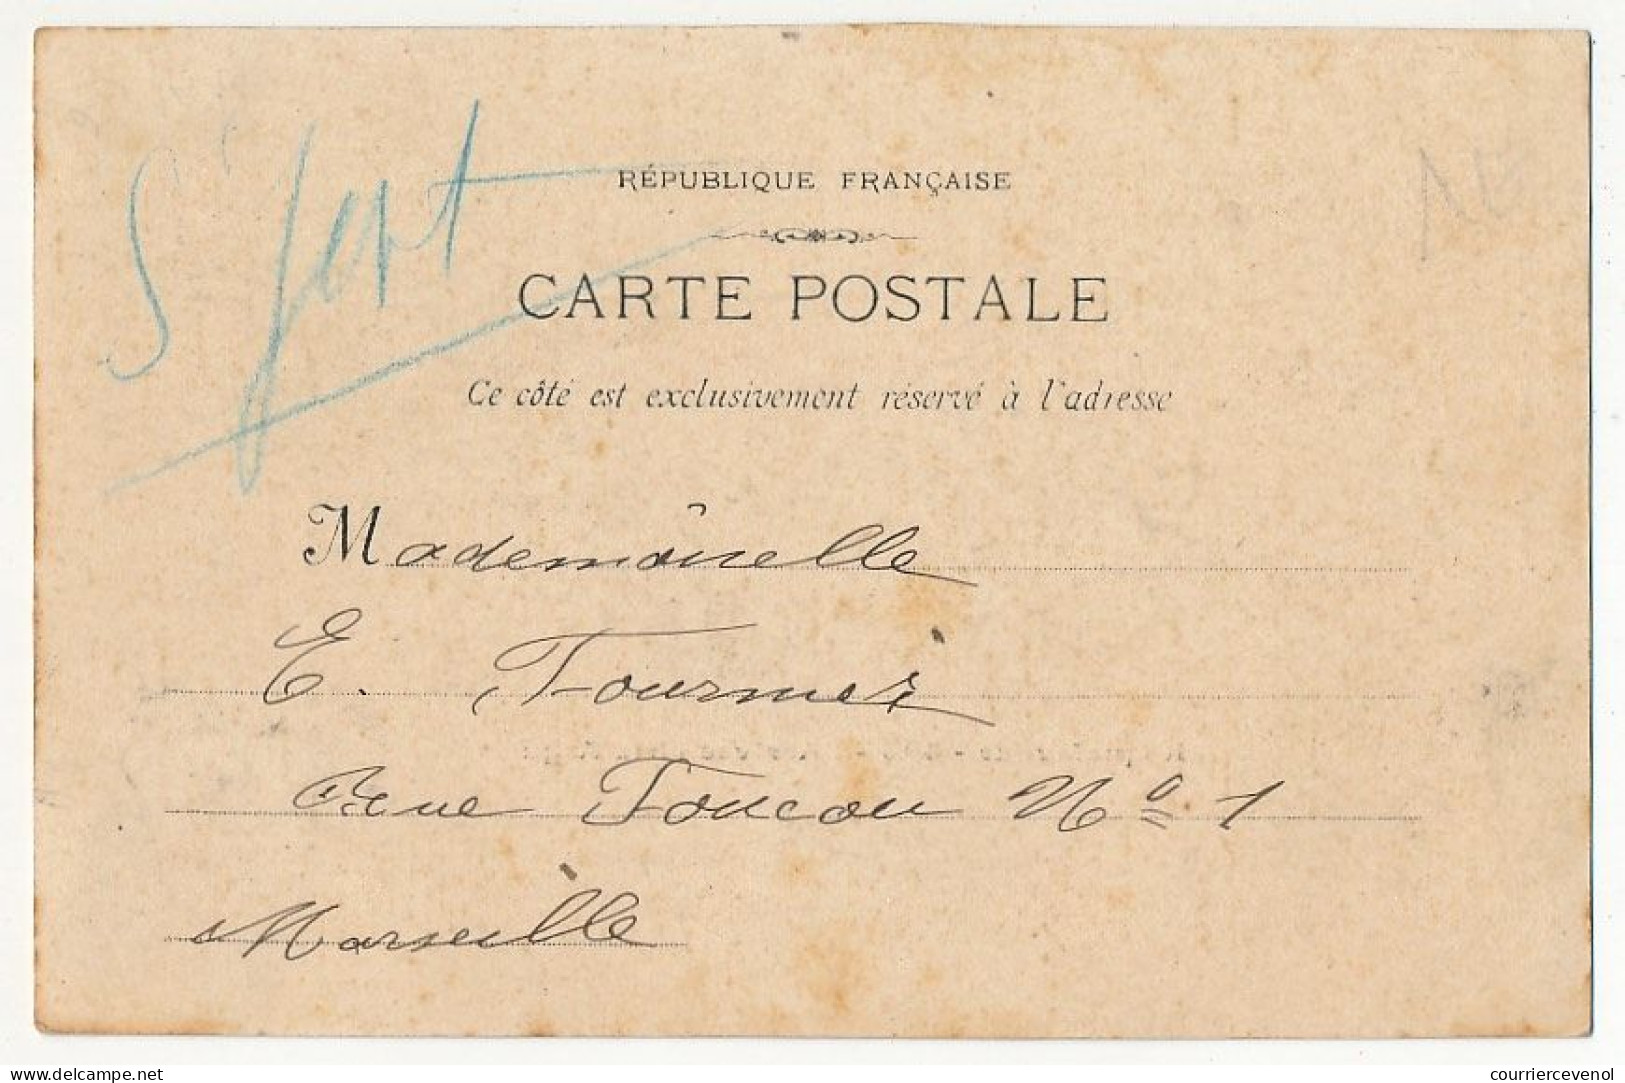 RÉPUBLIQUE FRANÇAISE
CARTE POSTALE
Ce côté est exclusivement réservé à l'adresse
Mademoiselle
E. Tournier
Rue Toucou Nº 1
Marseille
delcampe.net
courriercevenol